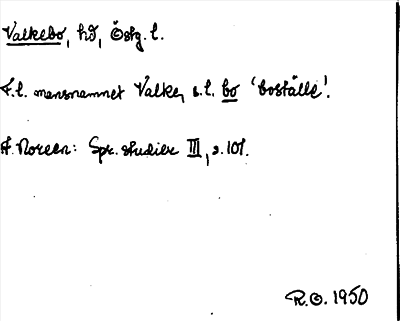 Valkebo, hd, Östg. l.
F.l. mansnamnet Valke, s.l. bo 'boställe'.
A. Noreen: Spr. studier III, s. 101.
R.O. 1950